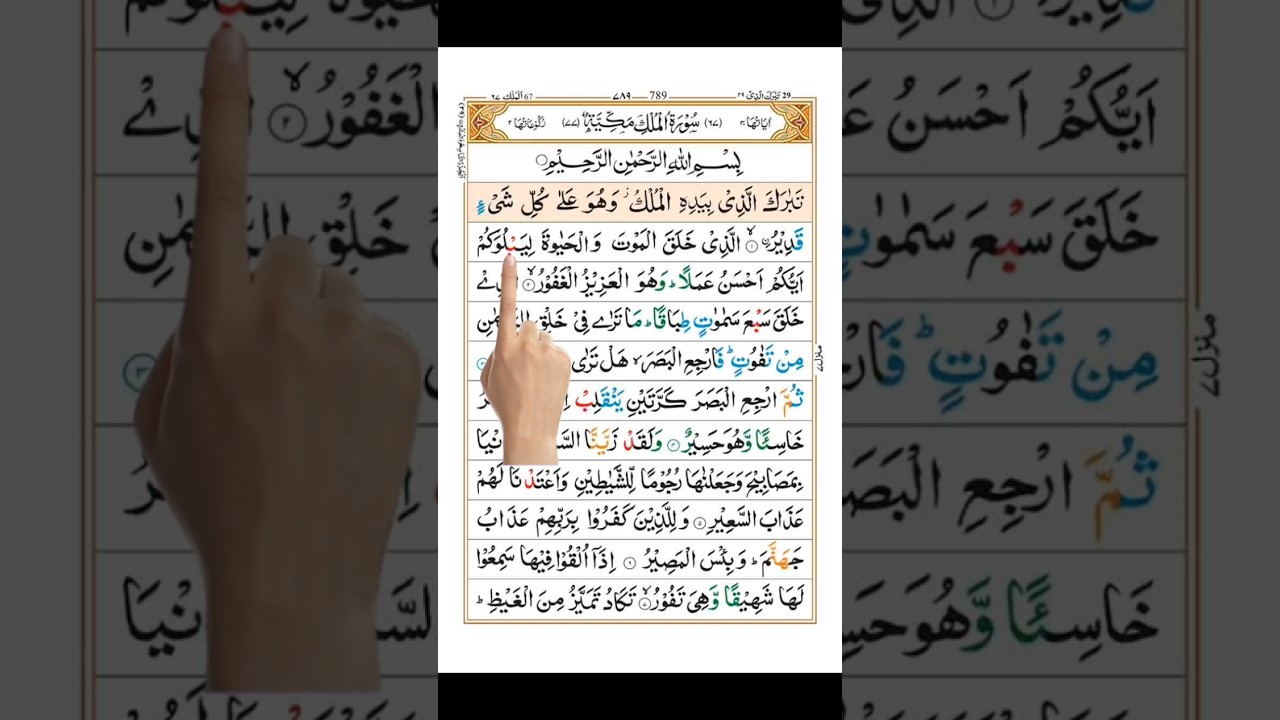 29 تَبٰرَكَ الَّذِیْ ٢٩
789 ٧٨٩
67 اَلْمُلْك ٦٧
اٰيَاتُهَا ٣٠ (٦٧) سُوْرَةُ الْمُلْكِ مَكِّيَّةٌ (٧٧) رُكُوْعَاتُهَا ٢
بِسْمِ اللّٰهِ الرَّحْمٰنِ الرَّحِيْمِ
تَبٰرَكَ الَّذِیْ بِيَدِهِ الْمُلْكُ ز وَهُوَ عَلٰی كُلِّ شَیْءٍ
قَدِيْرُ ۙ ١ الَّذِیْ خَلَقَ الْمَوْتَ وَ الْحَيٰوةَ لِيَبْلُوَكُمْ
اَيُّكُمْ اَحْسَنُ عَمَلًا ؕ وَهُوَ الْعَزِيْزُ الْغَفُوْرُ ۙ ٢
خَلَقَ سَبْعَ سَمٰوٰتٍ طِبَاقًا ؕ مَا تَرٰی فِیْ خَلْقِ
مِنْ تَفٰوُتٍ ؕ فَارْجِعِ الْبَصَرَ ۙ هَلْ تَرٰی
ثُمَّ ارْجِعِ الْبَصَرَ كَرَّتَيْنِ يَنْقَلِبْ
خَاسِئًا وَّهُوَ حَسِيْرٌ ٤ وَلَقَدْ زَيَّنَّا
بِمَصَابِيْحَ وَجَعَلْنٰهَا رُجُوْمًا لِّلشَّيٰطِيْنِ وَاَعْتَدْ نَا لَهُمْ
عَذَابَ السَّعِيْرِ ٥ وَ لِلَّذِيْنَ كَفَرُوْا بِرَبِّهِمْ عَذَابُ
جَهَنَّمَ ؕ وَ بِئْسَ الْمَصِيْرُ ٦ اِذَآ اُلْقُوْا فِيْهَا سَمِعُوْا
لَهَا شَهِيْقًا وَّ هِیَ تَفُوْرُ ۙ ٧ تَكَادُ تَمَيَّزُ مِنَ الْغَيْظِ ؕ
منزل ٧